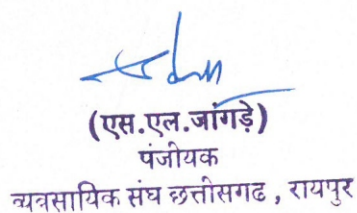 (एस.एल.जांगड़े)
पंजीयक
व्यवसायिक संघ छत्तीसगढ , रायपुर